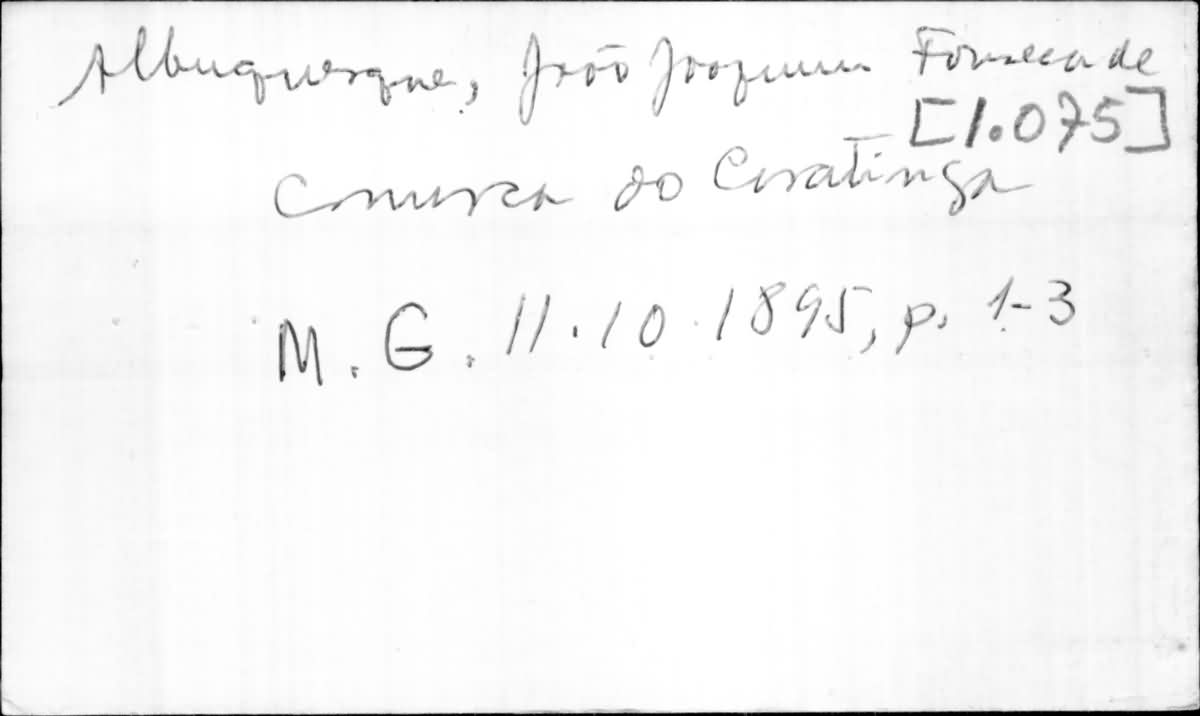 Albuquerque, João Joaquim Fonseca de
[1.075]
Comarca do Caratinga
M. G. 11.10.1895, p. 1-3